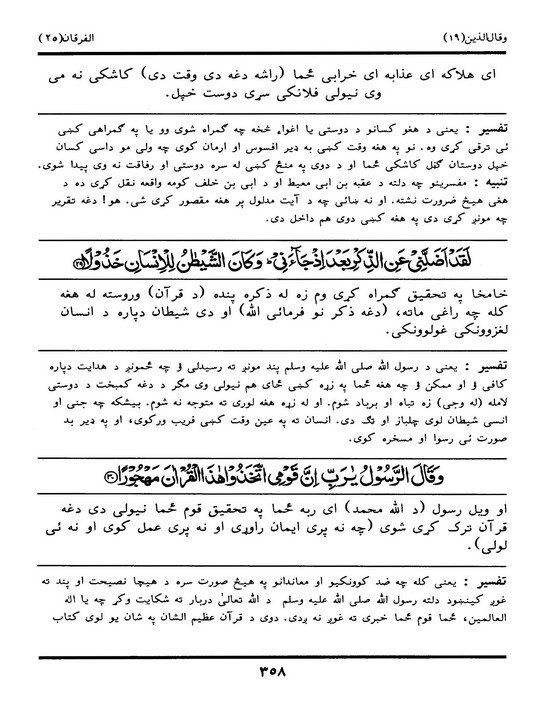 وقال‌الذین(۱۹) الفرقان(۲۵)
ای هلاکه ای عذابه ای خرابی ځما (راشه دغه دی وقت دی) کاشکی نه می
وی نیولی فلانکی سړی دوست خپل.
تفسیر : یعنی د هغو کسانو د دوستی یا اغواء څخه چه ګمراه شوی وو یا په ګمراهی کښی
ئی ترقی کړی وه. نو په هغه وقت کښی به ډیر افسوس او ارمان کوی چه ولی مو داسی کسان
خپل دوستان ګڼل کاشکی ځما او د دوی په منځ کښی له سره دوستی او رفاقت نه وی پیدا شوی.
تنبیه : مفسرینو چه دلته د عقبه بن ابی معیط او د ابی بن خلف کومه واقعه نقل کړی ده د
هغی هیڅ ضرورت نشته. او نه ښائی چه د آیت مدلول پر هغه مقصور کړی شی. هو! دغه تقریر
چه مونږ کړی دی په هغه کښی دوی هم داخل دی.
لَقَدْ اَضَلَّنِیْ عَنِ الذِّکْرِ بَعْدَ اِذْ جَآءَنِیْ ؕ وَکَانَ الشَّیْطٰنُ لِلْاِنْسَانِ خَذُوْلًا ﴿۲۹﴾
خامخا په تحقیق ګمراه کړی وم زه له ذکره پنده (د قرآن) وروسته له هغه
کله چه راغی ماته، (دغه ذکر نو فرمائی الله) او دی شیطان دپاره د انسان
لغزوونکی غولوونکی.
تفسیر : یعنی د رسول الله صلی الله علیه وسلم پند مونږ ته رسیدلی ؤ چه ځمونږ د هدایت دپاره
کافی ؤ او ممکن ؤ چه هغه ځما په زړه کښی ځای هم نیولی وی مګر د دغه کمبخت د دوستی
لامله (له وجی) زه تباه او برباد شوم. او له زړه هغه لوری ته متوجه نه شوم. بیشکه چه جنی او
انسی شیطان لوی چلباز او ټګ دی. انسان ته په عین وقت کښی فریب ورکوی، او په ډیر بد
صورت ئی رسوا او مسخره کوی.
وَقَالَ الرَّسُوْلُ یٰرَبِّ اِنَّ قَوْمِی اتَّخَذُوْا هٰذَا الْقُرْاٰنَ مَهْجُوْرًا ﴿۳۰﴾
او ویل رسول (د الله محمد) ای ربه ځما په تحقیق قوم ځما نیولی دی دغه
قرآن ترک کړی شوی (چه نه پری ایمان راوړی او نه پری عمل کوی او نه ئی
لولی).
تفسیر : یعنی کله چه ضد کوونکیو او معاندانو په هیڅ صورت سره د هیچا نصیحت او پند ته
غوږ کینښود دلته رسول الله صلی الله علیه وسلم د الله تعالیٰ دربار ته شکایت وکړ چه یا اله
العالمین، ځما قوم ځما خبری ته غوږ نه ږدی. دوی د قرآن عظیم الشان په شان یو لوی کتاب
۳۵۸